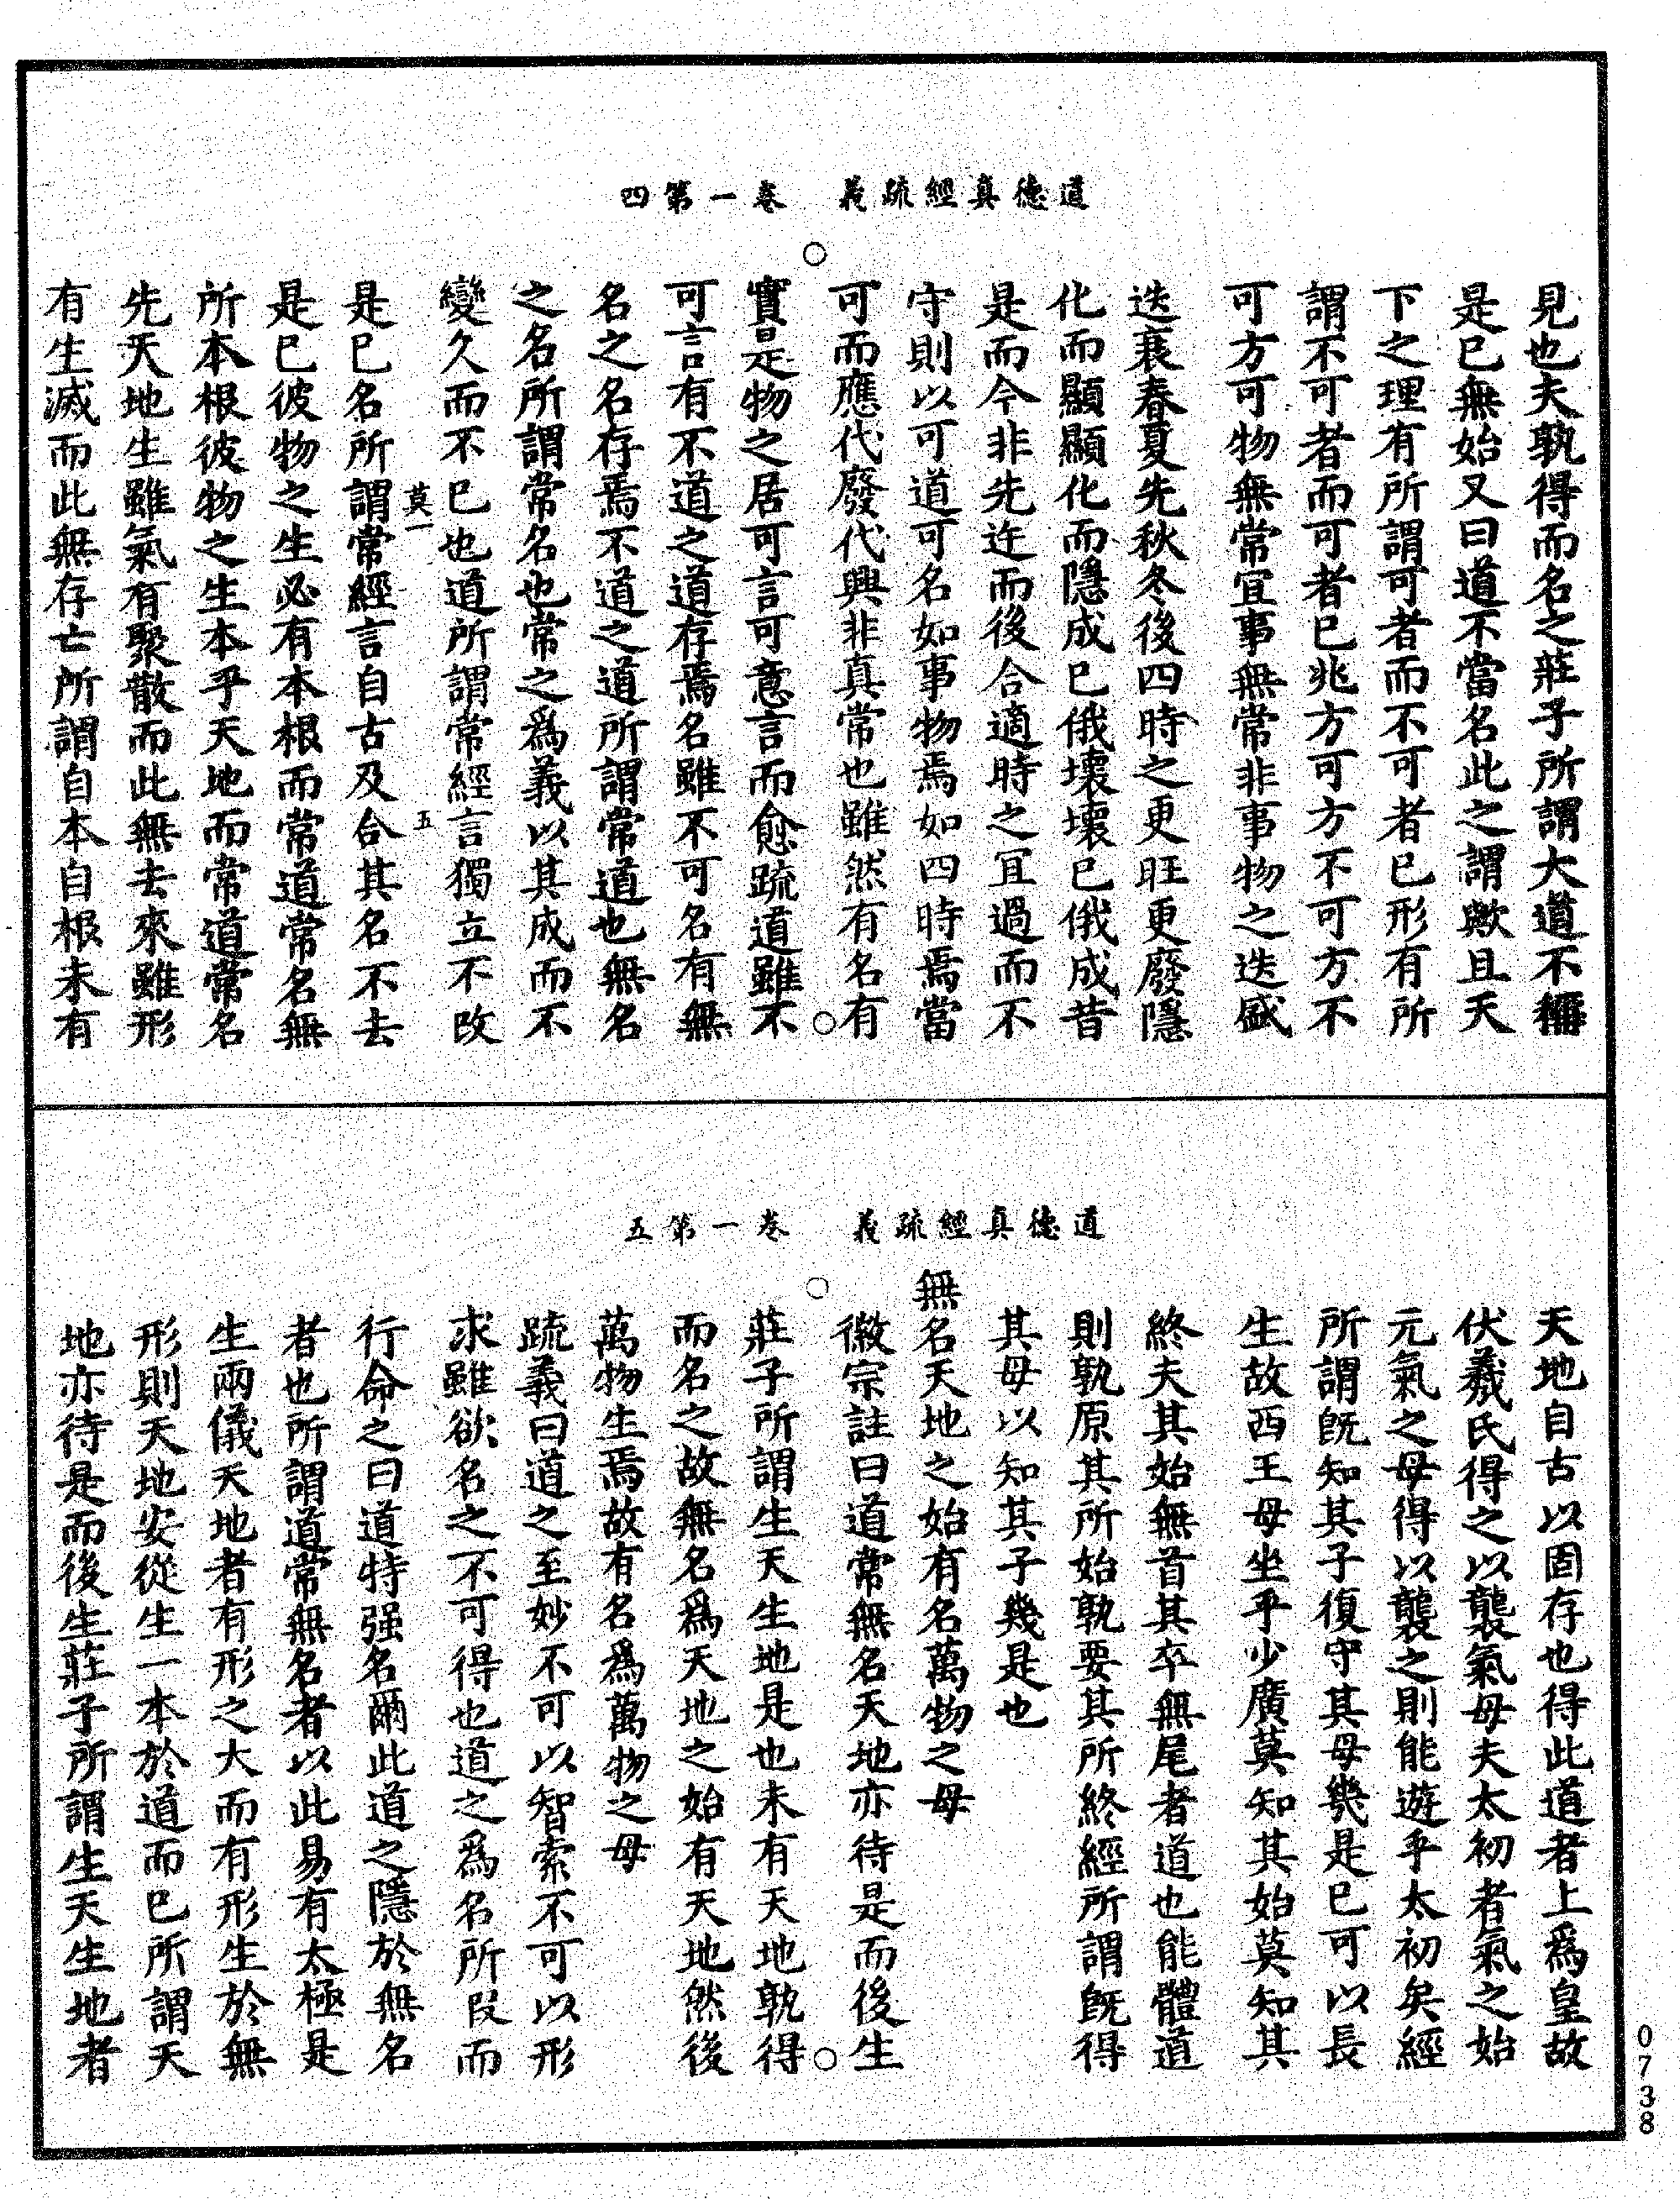 道德真經疏義　卷一第四
見也夫孰得而名之莊子所謂大道不稱
是已無始又曰道不當名此之謂歟且天
下之理有所謂可者而不可者已形有所
謂不可者而可者已兆方可方不可方不
可方可物無常宜事無常非事物之迭盛
迭衰春夏先秋冬後四時之更旺更廢隱
化而顯顯化而隱成已俄壞壞已俄成昔
是而今非先迕而後合適時之宜過而不
守則以可道可名如事物焉如四時焉當
可而應代廢代興非真常也雖然有名有
實是物之居可言可意言而愈疏道雖不
可言有不道之道存焉名雖不可名有無
名之名存焉不道之道所謂常道也無名
之名所謂常名也常之爲義以其成而不
變久而不已也道所謂常經言獨立不改
莫一　五
是已名所謂常經言自古及今其名不去
是已彼物之生必有本根而常道常名無
所本根彼物之生本乎天地而常道常名
先天地生雖氣有聚散而此無去來雖形
有生滅而此無存亡所謂自本自根未有
道德真經疏義　卷一第五
天地自古以固存也得此道者上爲皇故
伏羲氏得之以襲氣母夫太初者氣之始
元氣之母得以襲之則能遊乎太初矣經
所謂旣知其子復守其母幾是已可以長
生故西王母坐乎少廣莫知其始莫知其
終夫其始無首其卒無尾者道也能體道
則孰原其所始孰要其所終經所謂旣得
其母以知其子幾是也
無名天地之始有名萬物之母
徽宗註曰道常無名天地亦待是而後生
莊子所謂生天生地是也未有天地孰得
而名之故無名爲天地之始有天地然後
萬物生焉故有名爲萬物之母
疏義曰道之至妙不可以智索不可以形
求雖欲名之不可得也道之爲名所叚而
行命之曰道特强名爾此道之隱於無名
者也所謂道常無名者以此易有太極是
生兩儀天地者有形之大而有形生於無
形則天地安從生一本於道而已所謂天
地亦待是而後生莊子所謂生天生地者
0738